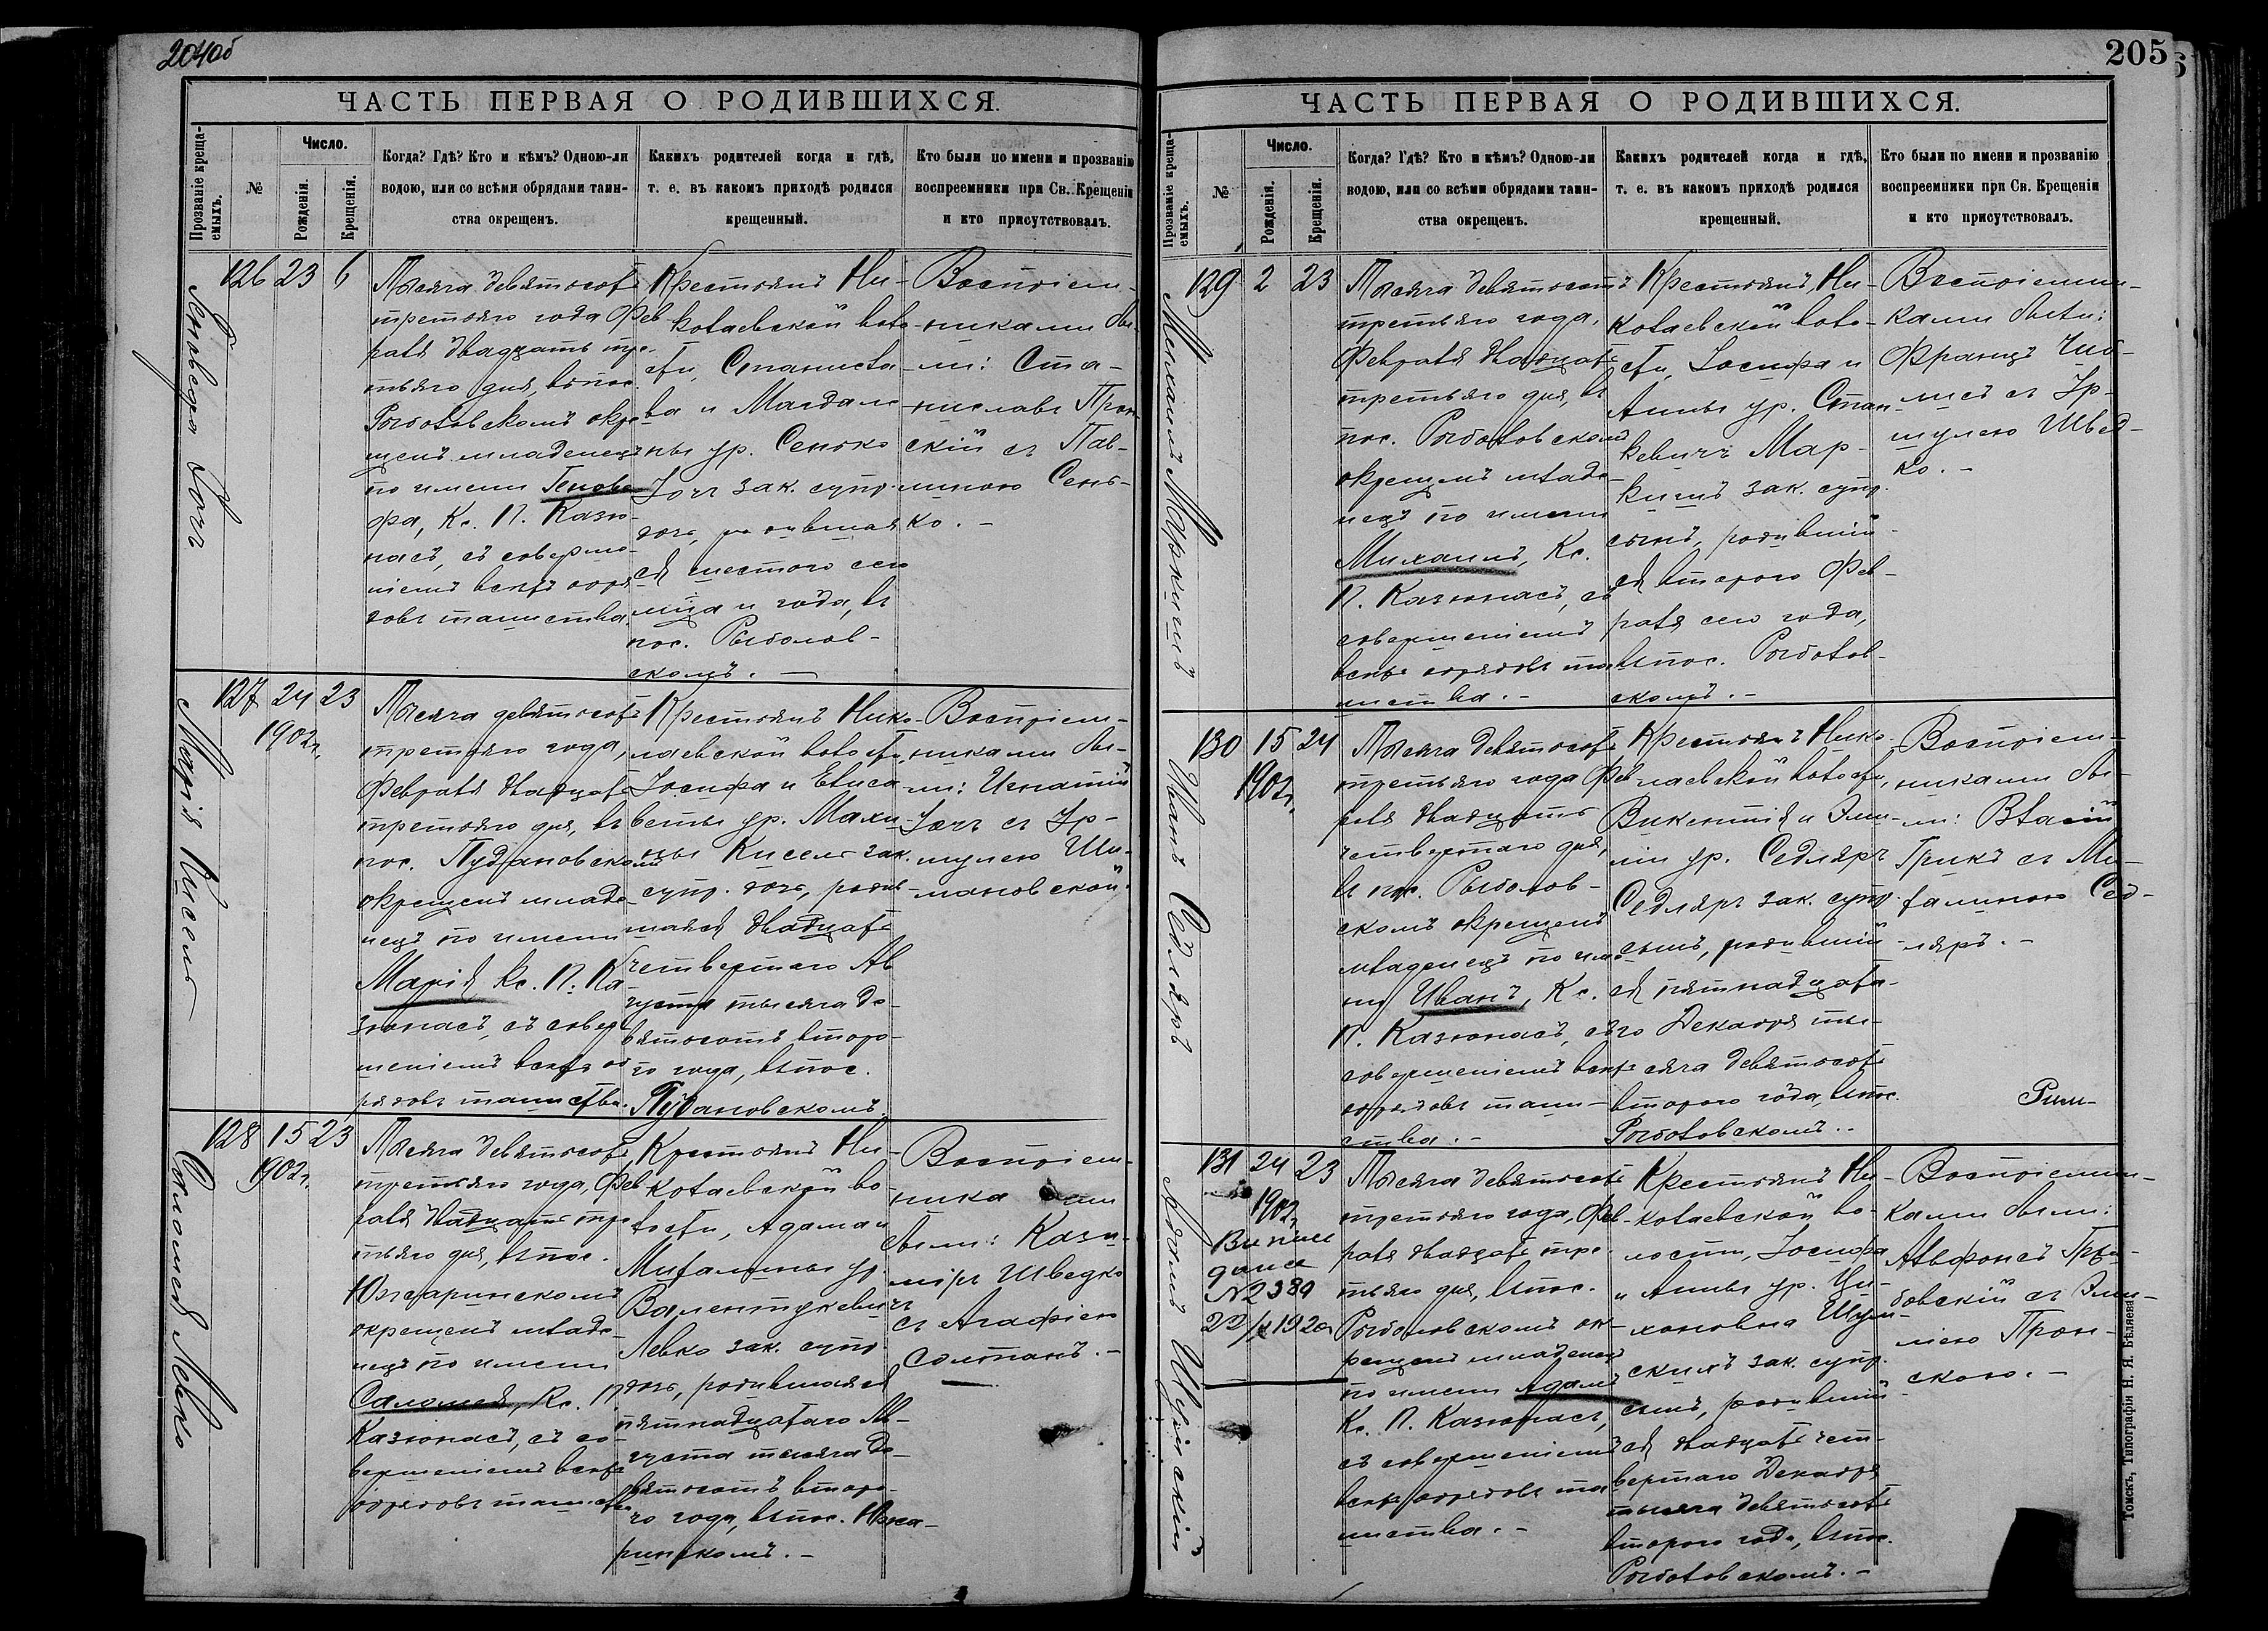 204об
ЧАСТЬ ПЕРВАЯ О РОДИВШИХСЯ.
Прозваніе крещаемыхъ.
№
Число.
Рожденія.
Крещенія.
Когда? Гдѣ? Кто и кѣмъ? Одною-ли
водою, или со всѣми обрядами таин-
ства окрещенъ.
Каких родителей когда и гдѣ,
т. е. въ какомъ приходѣ родился
крещенный.
Кто были по имени и прозванію
воспреемники при Св. Крещеніи
и кто присутствовалъ.
126 23 6
Тысяча девятьсотъ
третьяго года Фев
раля двадцать тре-
тьяго дня, въ пос.
Рыболовскомъ окре
щенъ младенецъ
по имени Генове
фа, Кс. П. Казю-
насъ, съ соверше-
ніемъ всѣхъ обря
довъ таинства.
Крестьянъ Ни-
колаевской воло
сти, Станисла-
ва и Магдале
ны ур. Сенько
зак. супр.
дочь, родившая
ся шестого сего
мѣца и года, въ
пос. Рыболов-
скомъ. —
Воспріем-
никами бы-
ли: Ста-
ниславъ Прон
скій съ Пав-
линою Сень-
ко. —
127 24 23
1902г.
Марія Кисель
Тысяча девятьсотъ
третьяго года,
Февраля двадцать
третьяго дня, въ
пос. Пудановскомъ
окрещенъ младе-
нецъ по имени
Марія Кс. П. Ка
зюнасъ, съ совер
шеніемъ всѣхъ об
рядовъ таинства.
Крестьянъ Нико-
лаевской волости,
Іосифа и Елиса
веты ур. Махи-
ны Кисель зак.
супр. дочь, родив
шаяся двадцать
четвертаго Ав
густа тысяча де-
вятьсотъ второ-
го года, въ пос.
Пудановскомъ.
Воспріем-
никами бы-
ли: Игнатій
съ Ур-
шулею Ши-
мановской.
128 15 23
1902г.
Саломея Левко
Тысяча девятьсотъ
третьяго года, Фев
раля двадцать тре
тьяго дня, въ пос.
Южаринскомъ
окрещенъ младе-
нецъ по имени
Саломея, Кс. П.
Казюнасъ, съ со-
вершеніемъ всѣхъ
обрядовъ таинства
Крестьянъ Ни-
колаевской во-
лости, Адама и
Михалины ур.
Валентукевичъ
Левко зак. супр.
дочь, родившаяся
пятнадцатаго Ав-
густа тысяча де-
вятьсотъ второ-
го года, въ пос. Южа-
ринскомъ. —
Воспріем-
никами
были: Кази-
міръ Шведко
съ Агафіею
Солтанъ. —
205
ЧАСТЬ ПЕРВАЯ О РОДИВШИХСЯ.
Прозваніе крещаемыхъ.
№
Число.
Рожденія.
Крещенія.
Когда? Гдѣ? Кто и кѣмъ? Одною-ли
водою, или со всѣми обрядами таин-
ства окрещенъ.
Каких родителей когда и гдѣ,
т. е. въ какомъ приходѣ родился
крещенный.
Кто были по имени и прозванію
воспреемники при Св. Крещеніи
и кто присутствовалъ.
129 2 23
Михаилъ Маркишъ
Тысяча девятьсотъ
третьяго года,
Февраля двадцать
третьяго дня, въ
пос. Рыболовскомъ
окрещенъ младе-
нецъ по имени
Михаилъ, Кс.
П. Казюнасъ, съ
совершеніемъ
всѣхъ обрядовъ та
инства. —
Крестьянъ Ни-
колаевской воло-
сти, Іосифа и
Анны ур. Стан-
кевичъ Мар-
кишъ зак. супр.
сынъ, родившій-
ся второго Фев-
раля сего года,
въ пос. Рыболов-
скомъ. —
Воспріемни-
ками были:
Францъ
съ Ур-
шулею Швед-
ко. —
130 15 24
1902г.
Иванъ Седляръ
Тысяча девятьсотъ
третьяго года Фев
раля двадцать
четвертаго дня,
въ пос. Рыболов-
скомъ окрещенъ
младенецъ по име
ни Иванъ, Кс.
П. Казюнасъ, съ
совершеніемъ всѣхъ
обрядовъ таин-
ства. —
Крестьянъ Нико-
лаевской волости,
Викентія и Эми-
ліи ур. Седляръ
Седляръ зак. супр.
сынъ, родившій-
ся пятнадцата-
го Декабря ты-
сяча девятьсотъ
второго года, въ пос.
Рыболовскомъ. —
Воспріем-
никами бы-
ли: Власій
Грикъ съ Ми-
халиною Сед-
ляръ. —
131 24 23
1902г.
№ 2389
Адамъ
Тысяча девятьсотъ
третьяго года, Фев-
раля двадцать тре
тьяго дня, въ пос.
Рыболовскомъ ок-
рещенъ младенецъ
по имени Адамъ
Кс. П. Казюнасъ,
съ совершеніемъ
всѣхъ обрядовъ та
инства. —
Крестьянъ Ни-
колаевской во-
лости, Іосифа
и Анны ур. Ци-
хановна
скихъ зак. супр.
сынъ, родившій
ся двадцать чет-
вертаго Декабря
тысяча девятьсотъ
второго года, въ пос.
Рыболовскомъ. —
Воспріемни-
ками были:
Альфонсъ
съ Эми-
ліею Прон-
скою. —
Томскъ, Типографія Н. Я. Бѣляева